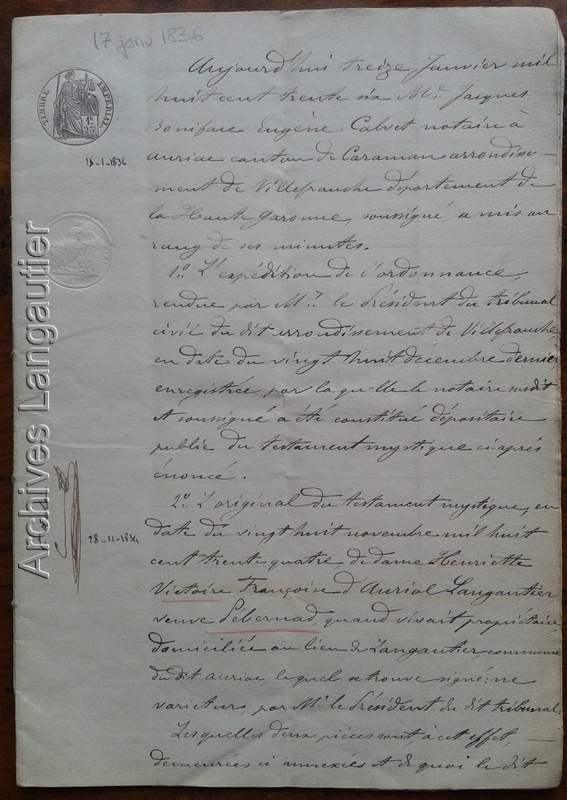 17 janv 1836
TIMBRE IMPERIAL
1F. 25C.
13-1-1836
28-11-1834
Archives Langautier
Aujourd'hui treize Janvier mil
huit cent trente six Me. Jacques
Boniface Eugène Calvet notaire à
auriac canton de Caraman arrondisse-
ment de Villefranche département de
la Haute Garonne, soussigné a mis au
rang de ses minutes.
1o. L'expédition de l'ordonnance,
rendue par Mr. le Président du tribunal
civil du dit arrondissement de Villefranche
en date du vingt huit décembre dernier
enregistrée par la quelle le notaire susdit
et soussigné a été constitué dépositaire
public du testament mystique ci-après
énoncé.
2o. L'original du testament mystique, en
date du vingt huit novembre mil huit
cent trente quatre de dame Henriette
Victoire Françoise d'Auriol Langautier
veuve Pébernad, quand vivait propriétaire
domiciliée au lieu de Langautier, commune
du dit auriac le quel se trouve signé: ne
varietur par Mr. le Président du dit tribunal
Les quelles deux pièces sont, à cet effet,
demeurées ci annexées et de quoi le dit